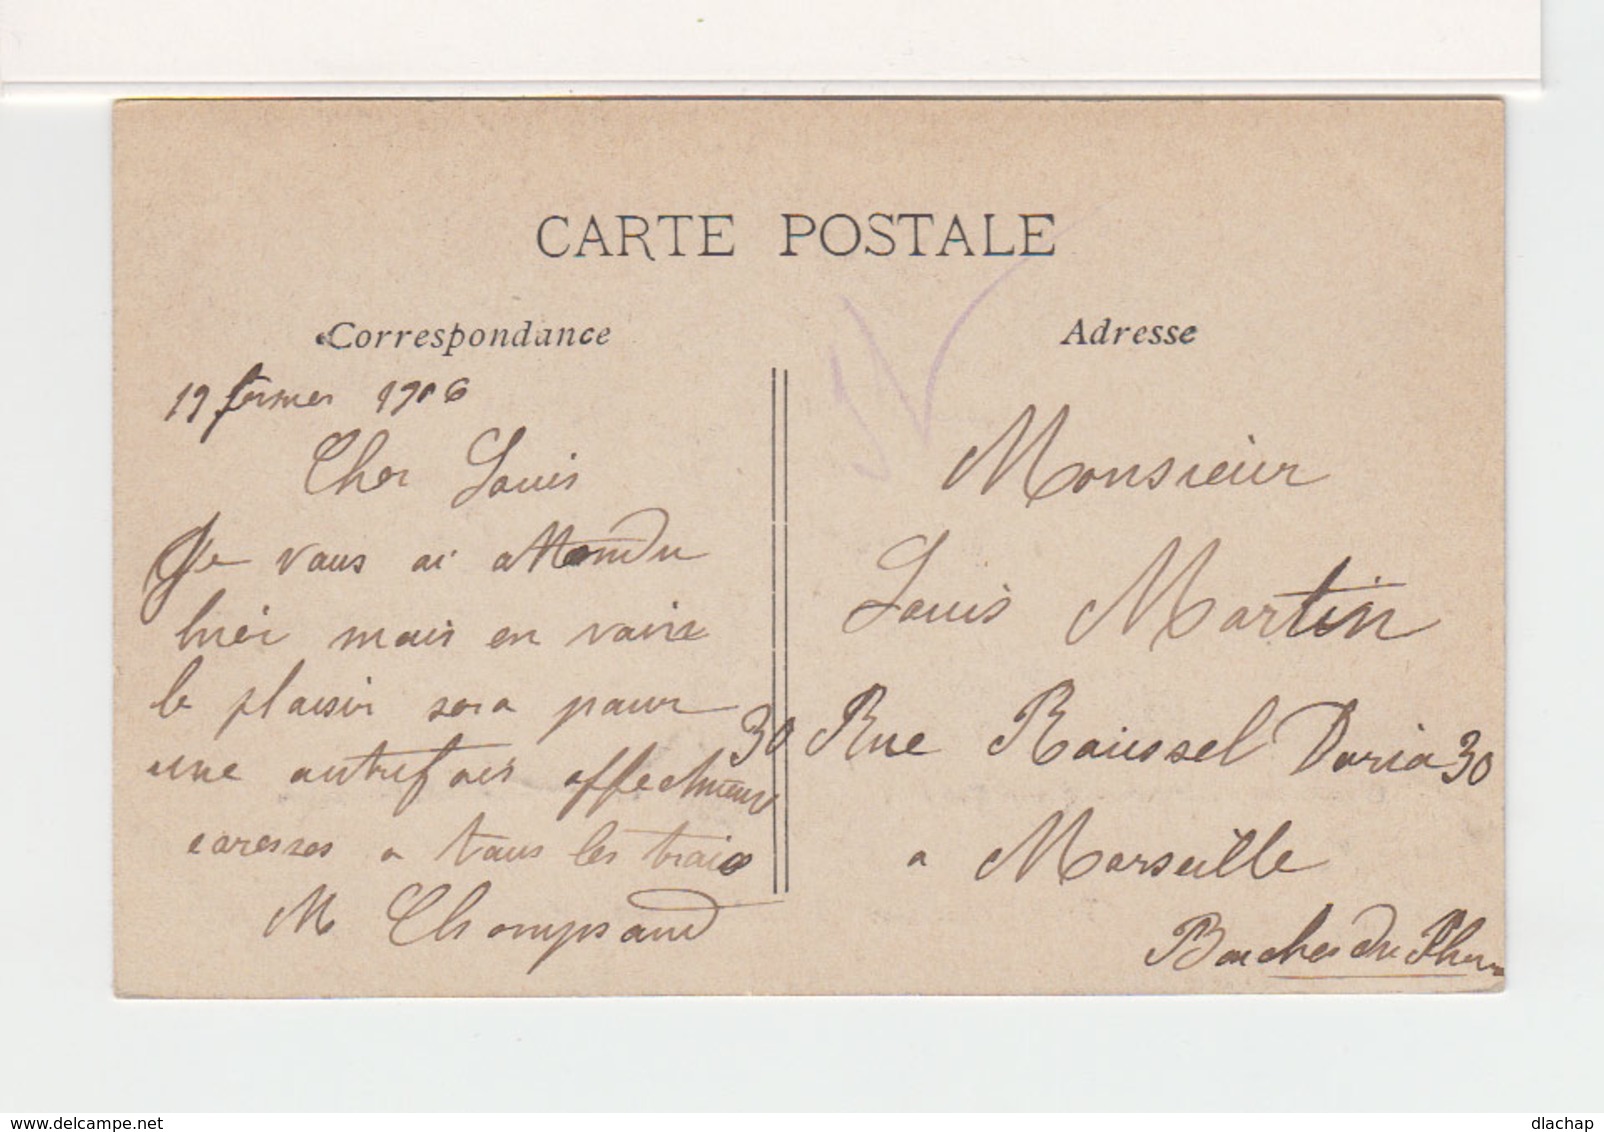 CARTE POSTALE
Correspondance
19 fevrier 1906
Cher Louis
Je vous ai attendu
hier mais en vain
le plaisir sera pour
une autrefois affectueux
caresses a tous les trois
M
Adresse
Monsieur
Louis Martin
30 Rue Roussel Doria 30
a Marseille
Bouches du Rhone
delcampe.net
dlachap